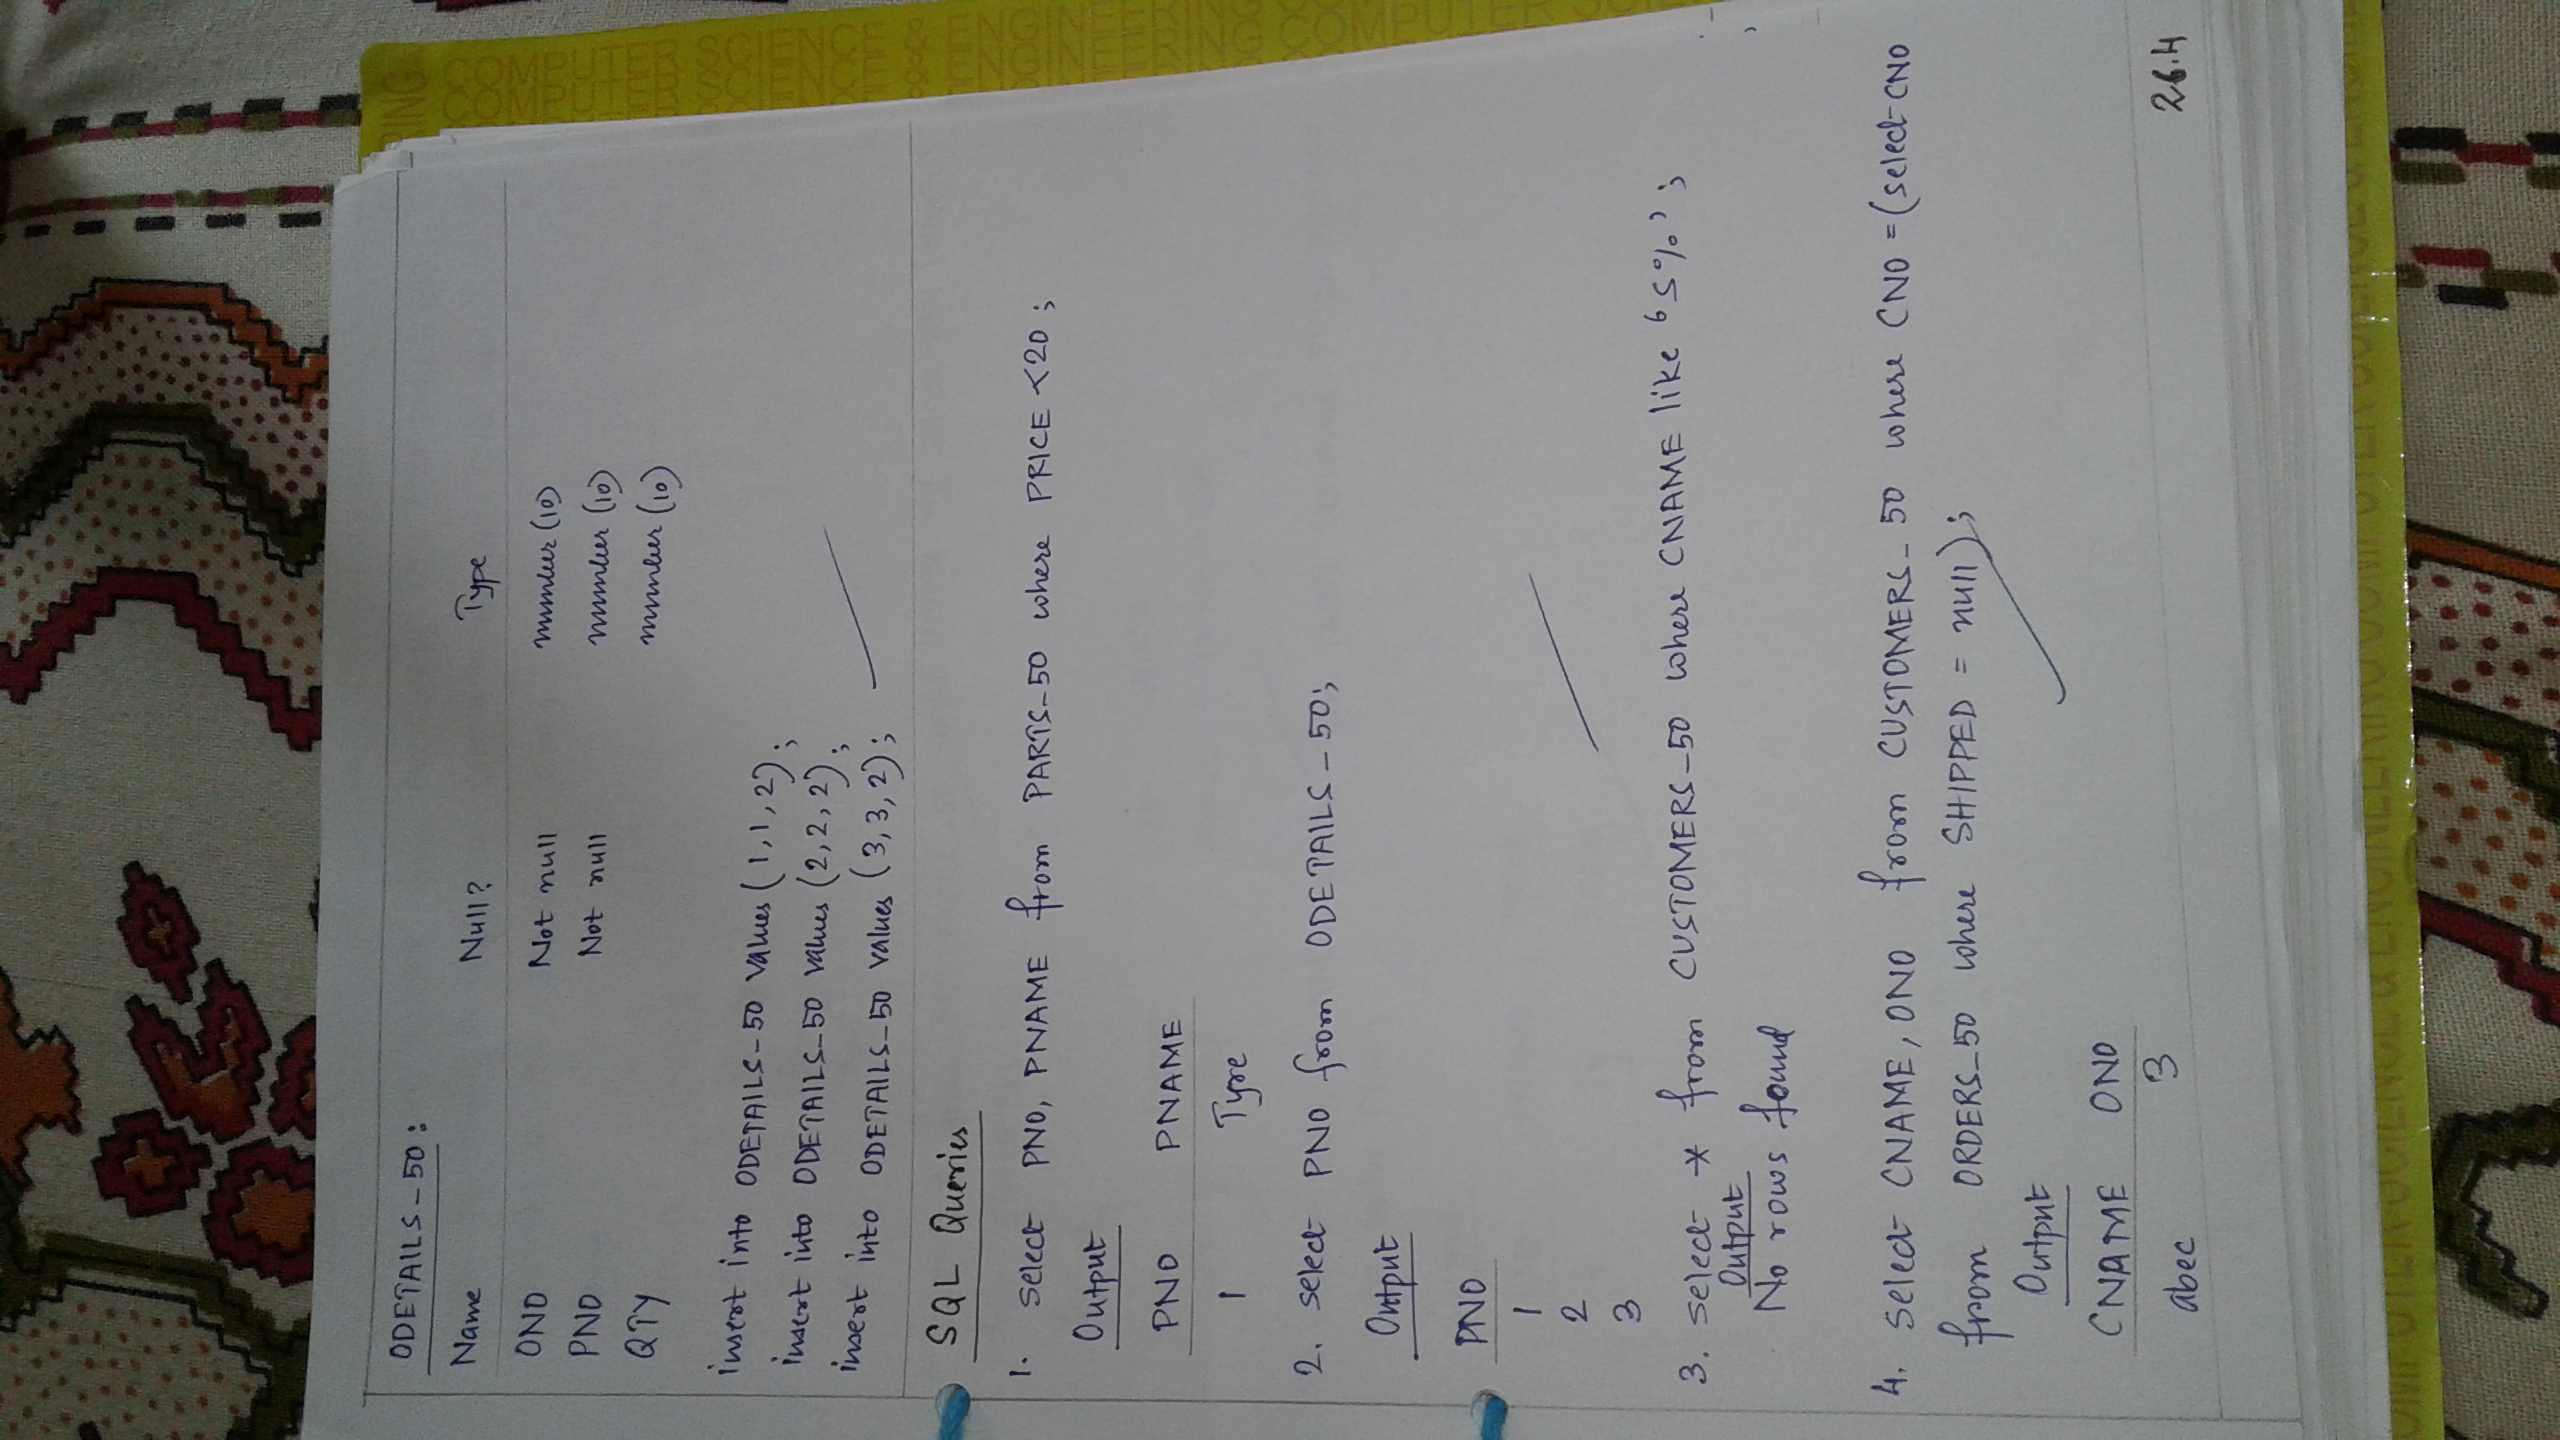 ODETAILS_50 :
Name Null? Type
ONO Not null number (10)
PNO Not null number (10)
QTY number (10)
insert into ODETAILS_50 values (1,1,2);
insert into ODETAILS_50 values (2,2,2);
insert into ODETAILS_50 values (3,3,2);
SQL Queries
1. select PNO, PNAME from PARTS_50 where PRICE <20 ;
Output
PNO PNAME
1 Tyre
2. select PNO from ODETAILS_50;
Output
PNO
1
2
3
3. select * from CUSTOMERS_50 where CNAME like 'S%' ;
Output
No rows found
4. select CNAME, ONO from CUSTOMERS_50 where CNO =(select CNO
from ORDERS_50 where SHIPPED = null);
Output
CNAME ONO
abec 3
26.4
COMPUTER SCIENCE & ENGINEERING COMPUTER SCIENCE & ENGINEERING